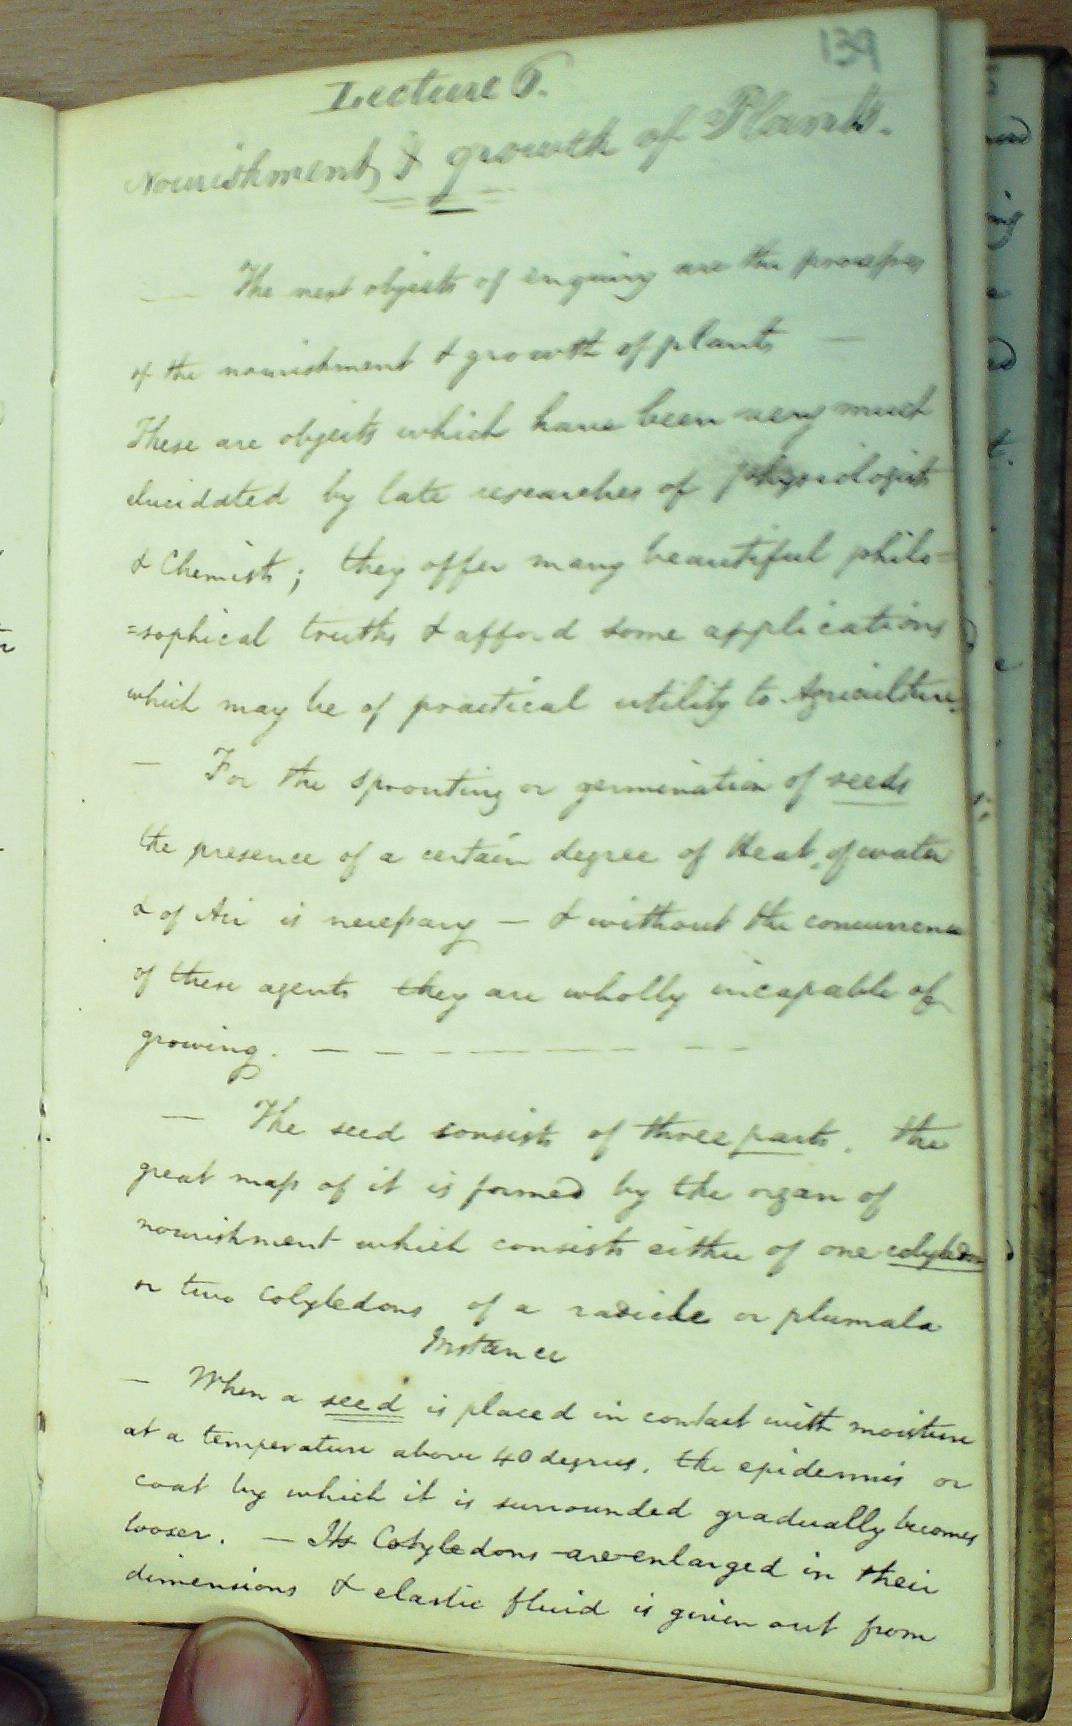 139
Lecture 6.
Nourishment & growth of Plants.
— The next objects of enquiry are the processes
of the nourishment & growth of plants —
These are objects which have been very much
elucidated by late researches of physiologist
& Chemists; they offer many beautiful philo=
=sophical truths & afford some applications
which may be of practical utility to Agriculture.
— For the sprouting or germination of seeds
the presence of a certain degree of Heat, of water
& of Air is necessary — & without the concurrence
of these agents they are wholly incapable of
growing. — — — — — — — —
— The seed consists of three parts. the
great mass of it is formed by the organ of
nourishment which consists either of one cotyledon
or two Cotyledons of a radicle or plumala
Instance
— When a seed is placed in contact with moisture
at a temperature above 40 degrees. the epidermis or
coat by which it is surrounded gradually becomes
looser. — Its Cotyledons are enlarged in their
dimensions & elastic fluid is given out from